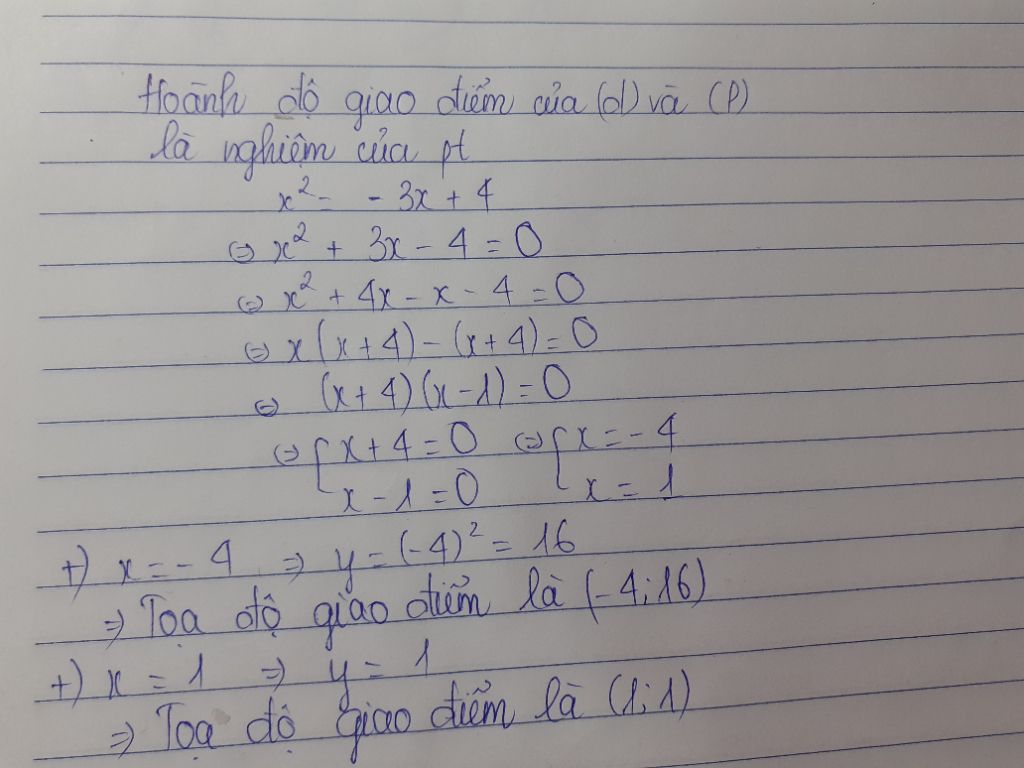 Hoành độ giao điểm của (d) và (P)
là nghiệm của pt
x² = -3x + 4
⇔ x² + 3x - 4 = 0
⇔ x² + 4x - x - 4 = 0
⇔ x(x+4) - (x+4) = 0
⇔ (x+4)(x-1) = 0
⇔ [x+4=0 ⇔ [x=-4
x-1=0 x=1
+) x = -4 ⇒ y = (-4)² = 16
⇒ Toạ độ giao điểm là (-4;16)
+) x = 1 ⇒ y = 1
⇒ Toạ độ giao điểm là (1;1)